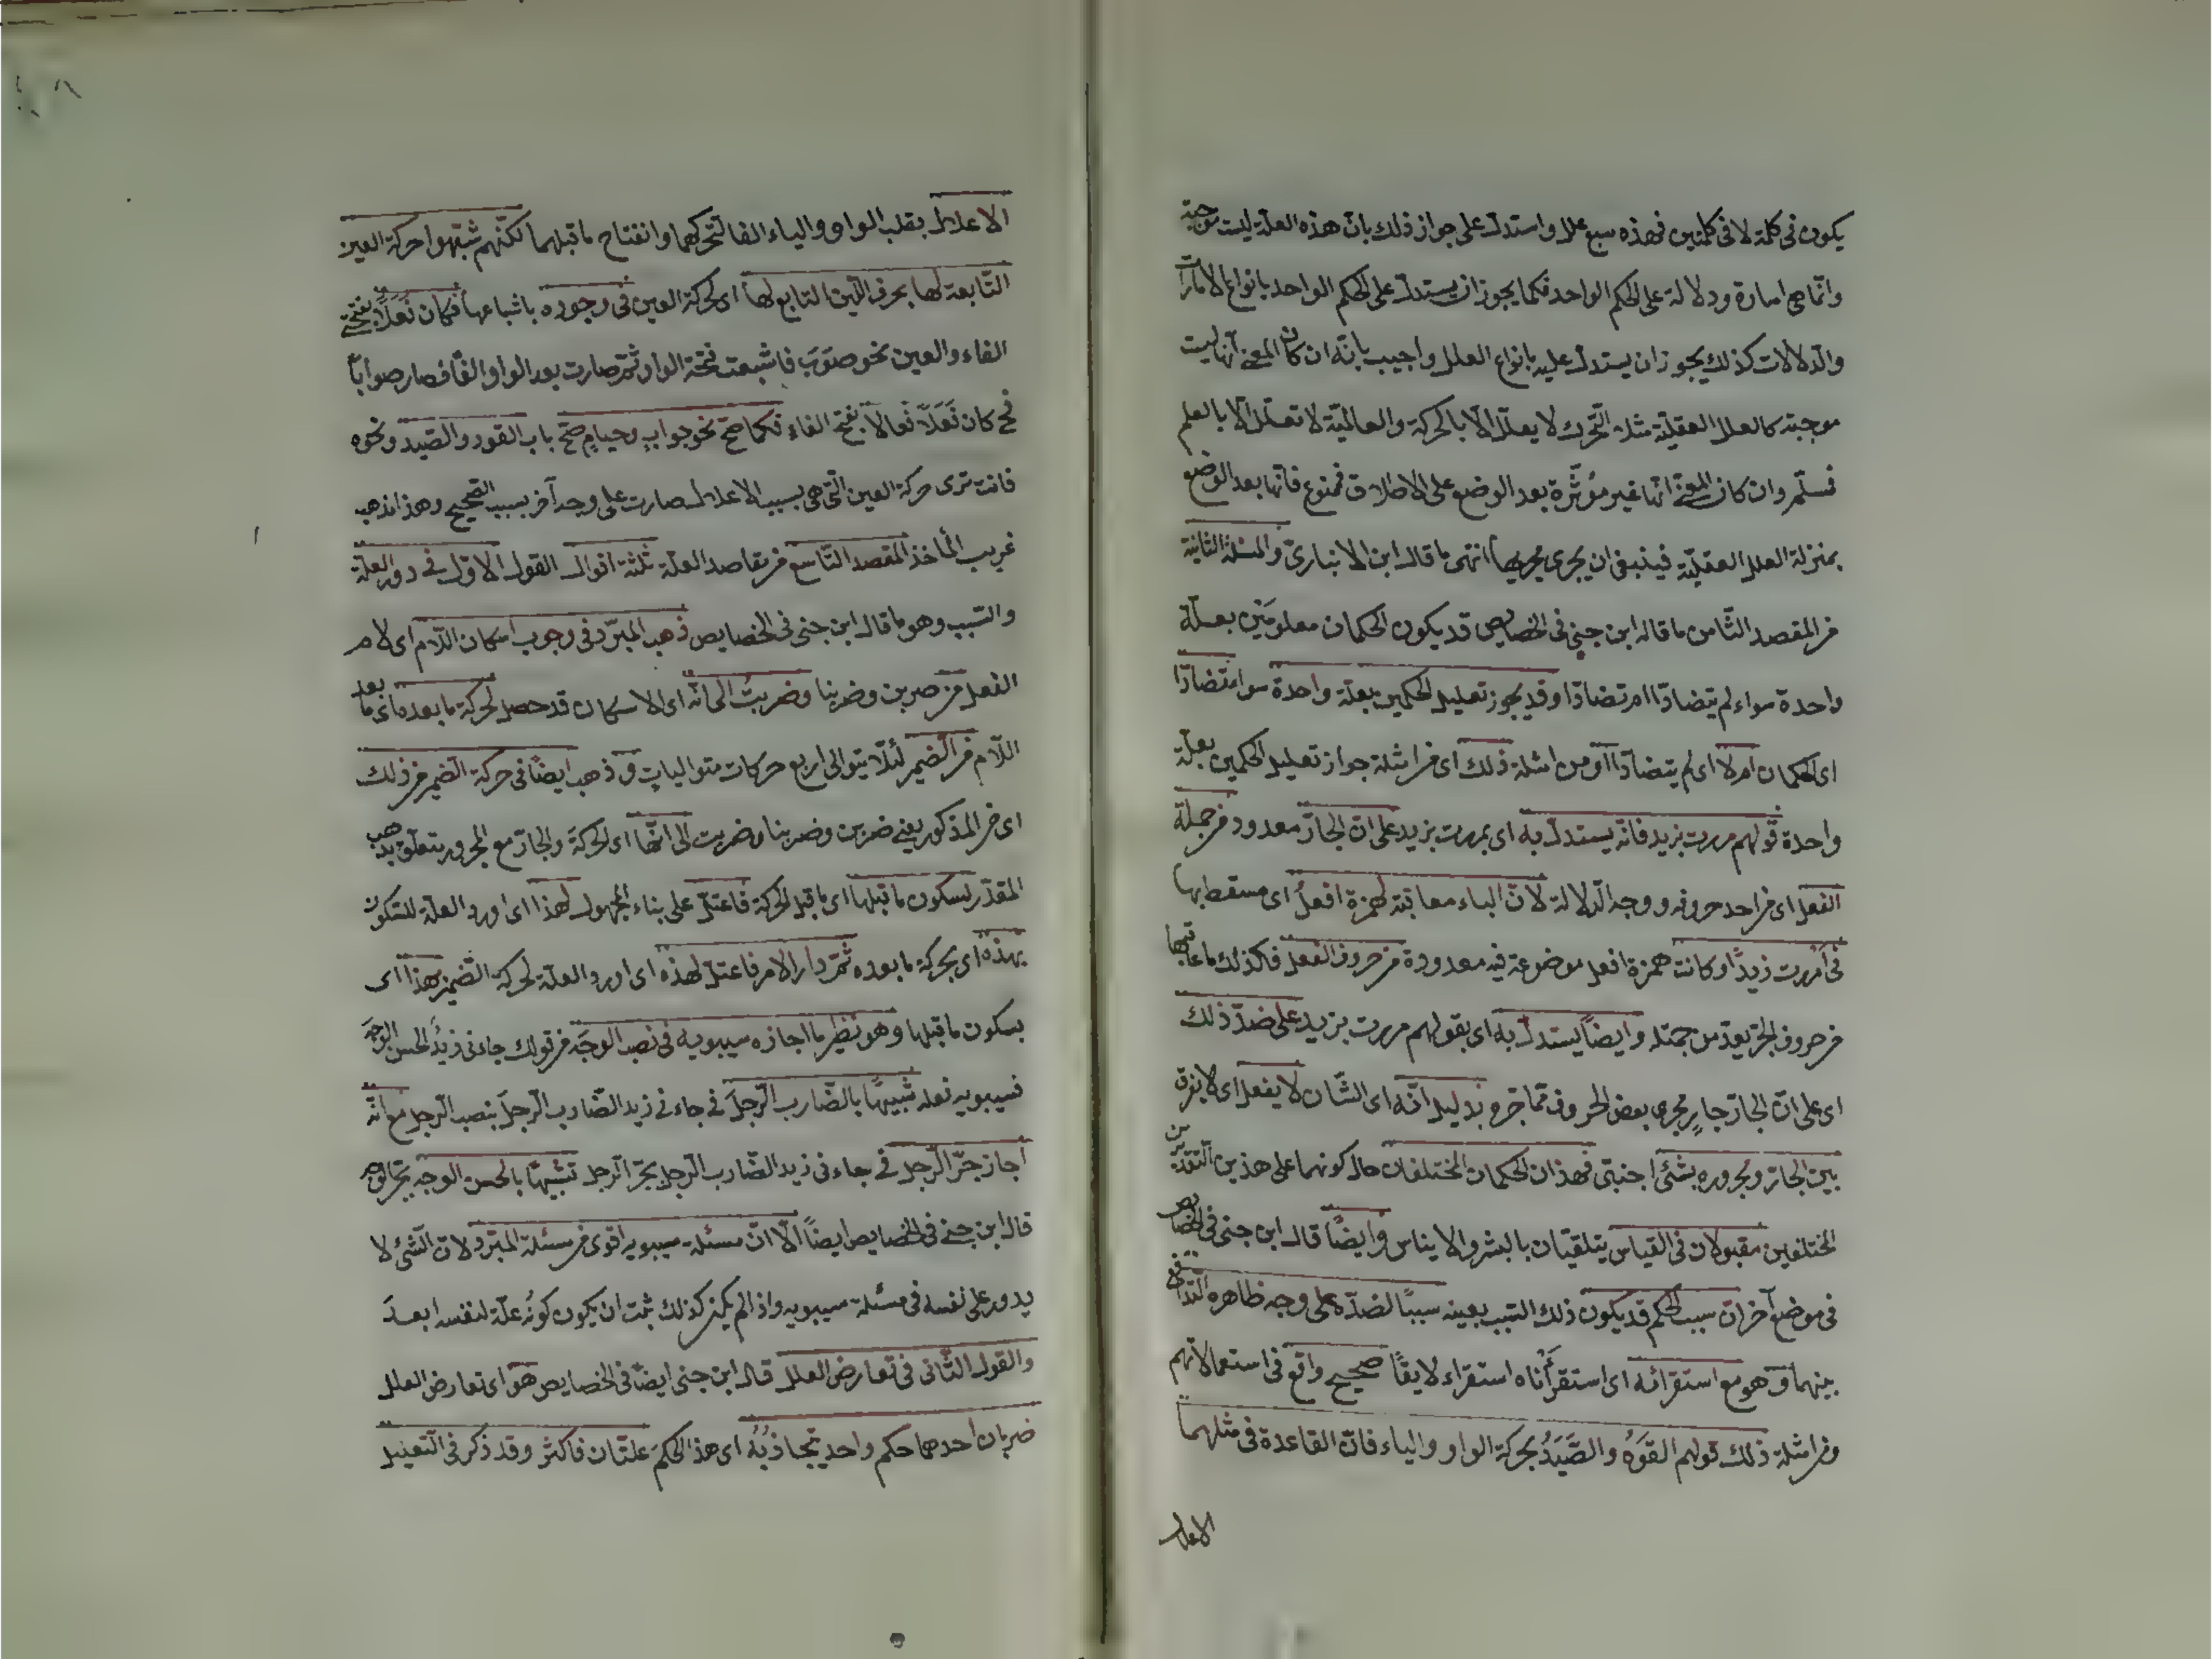 يكون فى كلمة لا فى كلمتين فهذه سبع علل واستدل على جواز ذلك بان هذه العلة ليست موجبة
وانما هى امارة ودلالة على الحكم الواحد فكما يجوز ان يستدل على الحكم الواحد بانواع الامارات
والدلالات كذلك يجوز ان يستدل عليه بانواع العلل واجيب بانه ان كان المعنى انها ليست
موجبة كالعلل العقلية مثل التحرك لا يعلل الا بالحركة والعالمية لا تعلل الا بالعلم
فمسلم وان كان المعنى انها غير مؤثرة بعد الوضع على الاطلاق فممنوع فانها بعد الوضع
بمنزلة العلل العقلية فينبغى ان يجرى مجريها انتهى ما قال ابن الانبارى والمسئلة الثانية
من المقصد الثامن ما قاله ابن جنى فى الخصايص قد يكون الحكمان معلومين بعلة
واحدة سواء لم يتضادا ام تضادا وقد يجوز تعليل الحكمين بعلة واحدة سواء تضادا
اى الحكمان ام لا اى لم يتضادا ومن امثلة ذلك اى من امثلة جواز تعليل الحكمين بعلة
واحدة قولهم مررت بزيد فانه يستدل به اى بمررت بزيد على ان الجار معدود من جملة
الفعل اى من احد حروفه ووجه الدلالة لان الباء معاقبة لهمزة افعل اى مسقط بها
فى امررت زيدًا وكانت همزة افعل موضوعة فيه معدودة من حروف الفعل فكذلك ما عاقبها
من حروف الجر يعد من جمتله وايضاً يستدل به اى بقولهم مررت بزيد على ضد ذلك
اى على ان الجار جارٍ مجرى بعض الحروف مما جره بدليل انه اى الشان لا يفعل اى لا يفرق
بين الجار ومجروره بشئ اجنبى فهذان الحكمان المختلفان حال كونهما على هذين التقديرين
المختلفين مقبولان فى القياس يتلقيان بالبشر والايناس وايضًا قال ابن جنى فى الخصايص
فى موضع آخر ان سبب الحكم قد يكون ذلك السبب بعينه سببًا لضده على وجه ظاهره التدافع
بينهما وهو مع استقرائه اى استقرأناه استقراء لايقًا صحيح واقع فى استعمالاتهم
ومن امثلة ذلك قولهم القَوَدُ والصَّيَدُ بحركة الواو والياء فان القاعدة فى مثلهما
الاعلال
الاعلال بقلب الواو والياء الفا لتحركهما وانفتاح ما قبلهما لكنهم شبهوا حركة العين
التابعة لها بحرف اللين التابع لها اى لحركة العين فى وجوده باشباعها فكان فَعَلاً بفتحتى
الفاء والعين نحو صَوَبَ فاشبعت فتحة الواو ثم صارت بعد الواو الفًا فصار صوابًا
فح كان فَعَلاً فَعالاً بفتح الفاء فكما صح نحو جوابٍ وحيامٍ صح باب القود والصيد ونحوه
فانت ترى حركة العين التى هى بسبب الاعلال صارت على وجه آخر بسبب الصحيح وهذا مذهب
غريب المأخذ المقصد التاسع من مقاصد العلة ثلثة اقوال القول الاول فى دور العلة
والسبب وهو ما قال ابن جنى فى الخصايص ذهب المبرد فى وجوب اسكان اللام اى لام
الفعل من ضربن وضربنا وضربتُ الى انه اى الاسكان قد حصل لحركة ما بعده اى ما بعد
اللام من الضمير لئلا يتوالى اربع حركات متواليات وذهب ايضًا فى حركة الضمير من ذلك
اى من المذكور يعنى ضربن وضربنا وضربت الى انها اى الحركة والجار مع المجرور يتعلق بذهب
المقدر لسكون ما قبلها اى ما قبل الحركة فاعتل على بناء المجهول لهذا اى اورد العلة للسكون
بهذه اى بحركة ما بعده ثم دار الامر فاعتل لهذه اى اورد العلة لحركة الضمير بهذا اى
بسكون ما قبلها وهو نظير ما اجازه سيبويه فى نصب الوجه من قولك جاءنى زيدُ الحسن الوجهَ
فسيبويه فعله تشبيهًا بالضارب الرجلَ فى جاءنى زيد الضارب الرجلَ بنصب الرجل مع انه
اجاز جر الرجل فى جاءنى زيد الضارب الرجل بجر الرجل تشبيهًا بالحسن الوجه بجر الوجه
قال ابن جنى فى الخصايص ايضًا الا ان مسئلة سيبويه اقوى من مسئلة المبرد لان الشئ لا
يدور على نفسه فى مسئلة سيبويه واذا لم يكن كذلك ثبت ان يكون كونُه علة لنفسه ابعدَ
والقول الثانى فى تعارض العلل قال ابن جنى ايضًا فى الخصايص هو اى تعارض العلل
ضربان احدهما حكم واحد تجاذبُه اى هذا الحكم علتان فاكثر وقد ذكر فى التعليل